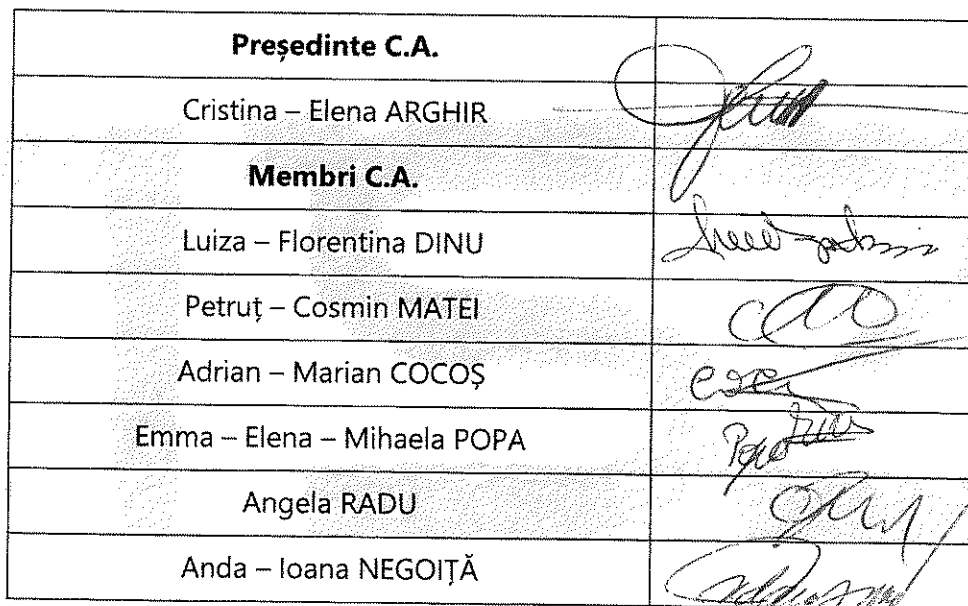 Președinte C.A.
Cristina – Elena ARGHIR
Membri C.A.
Luiza – Florentina DINU
Petruț – Cosmin MATEI
Adrian – Marian COCOȘ
Emma – Elena – Mihaela POPA
Angela RADU
Anda – Ioana NEGOIȚĂ